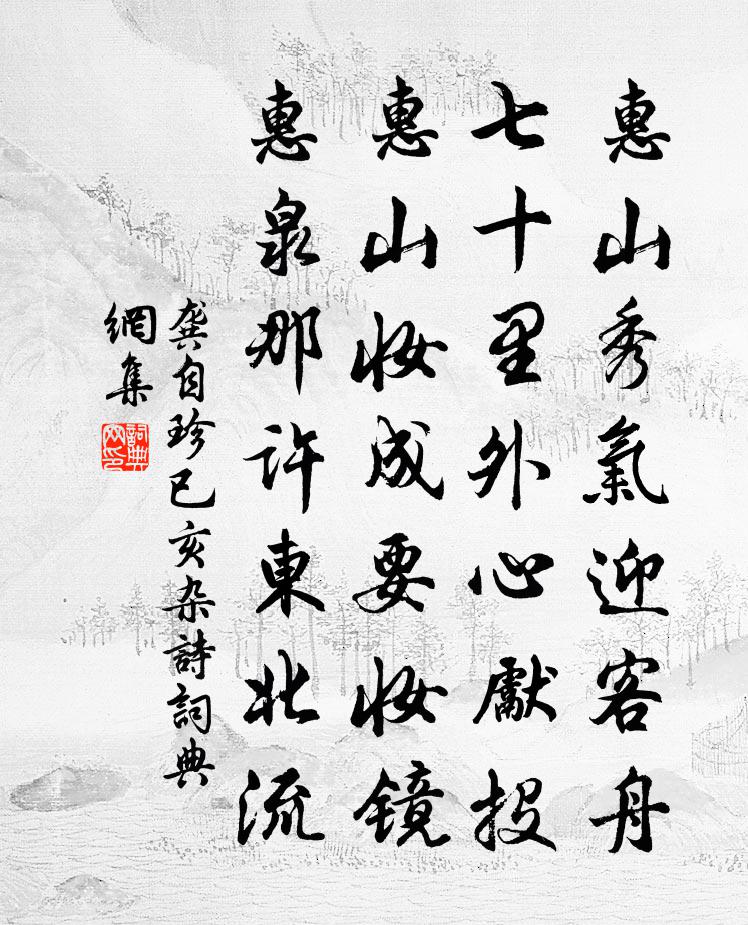 惠山秀氣迎客舟
七十里外心獻投
惠山妆成要妆镜
惠泉那許東北流
龔自珍己亥杂詩詞典
網集
詞典
网印